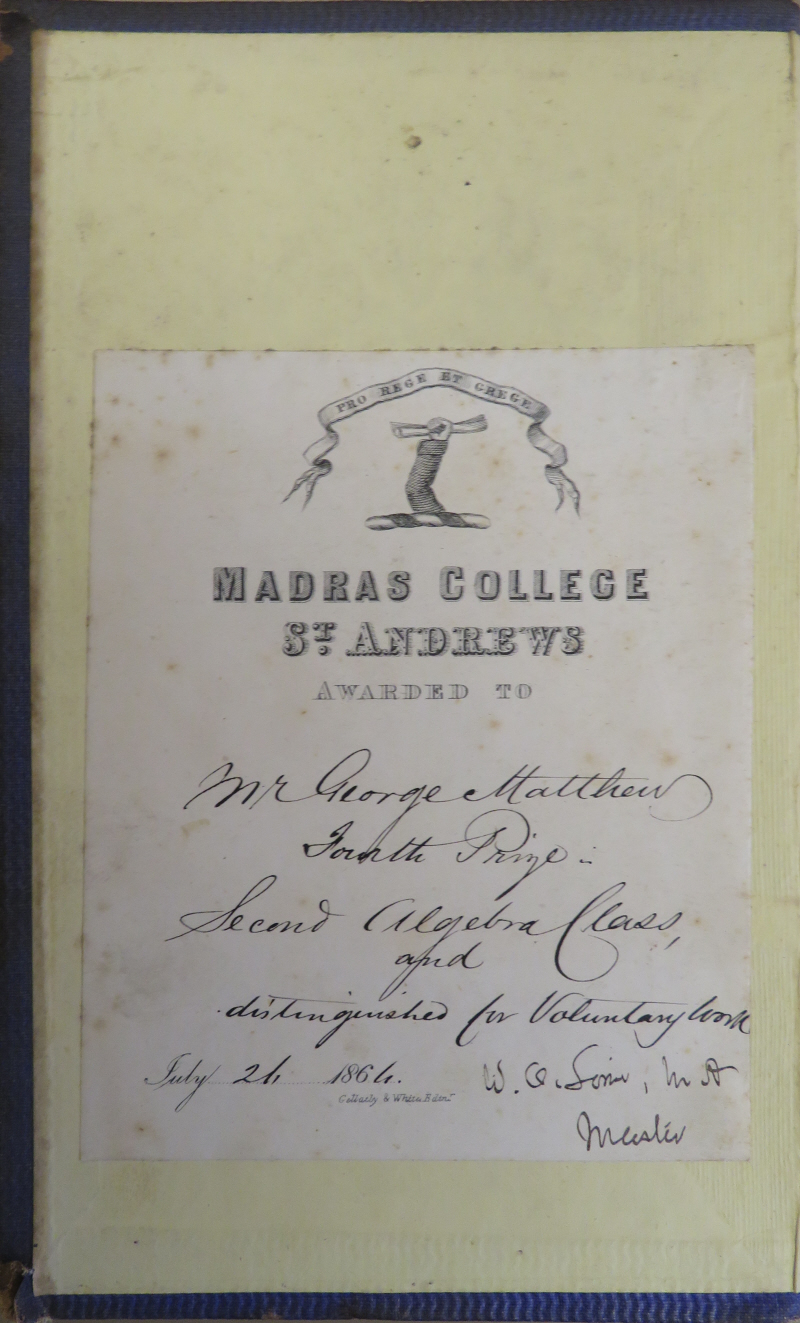 PRO REGE ET GREGE
MADRAS COLLEGE
ST. ANDREWS
AWARDED TO
Mr George Matthew
Fourth Prize
Second Algebra Class,
and
distinguished for Voluntary Work
July 24 1864.
W. O. M A
& White Edinr.
Master